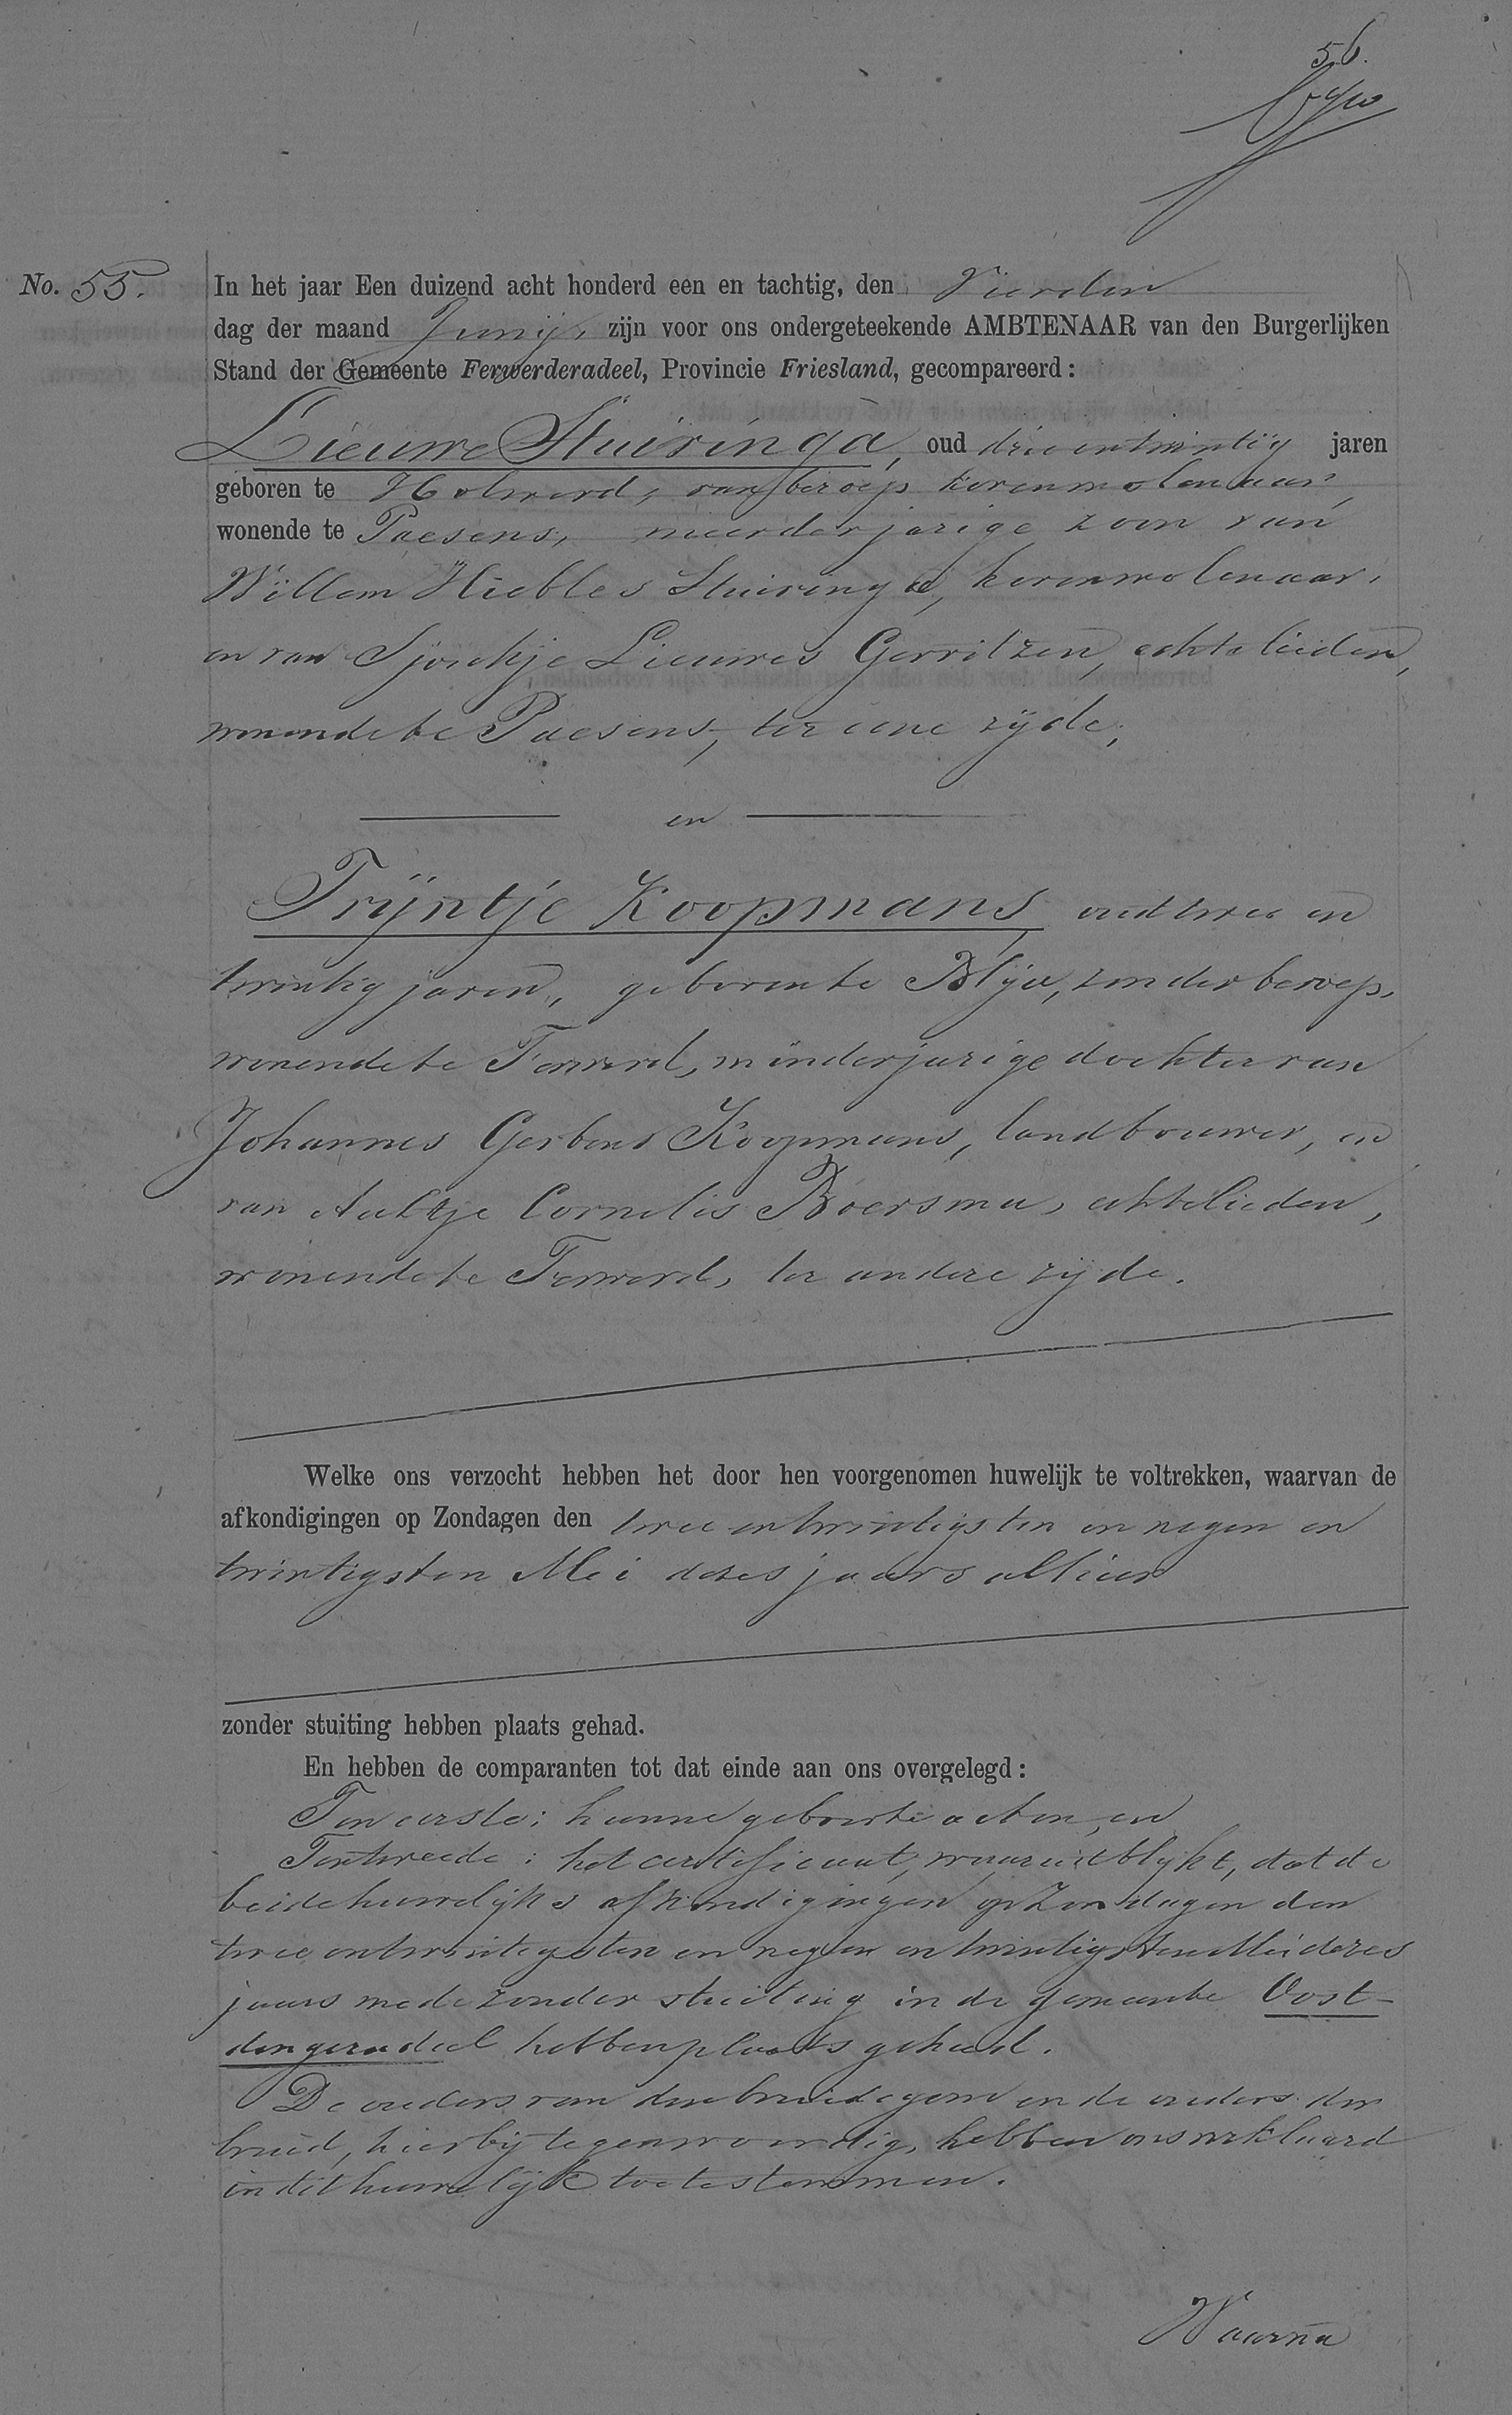 56.
No. 55.
In het jaar Een duizend acht honderd een en tachtig, den Vierden
dag der maand Junij, zijn voor ons ondergeteekende AMBTENAAR van den Burgerlijken
Stand der Gemeente Ferwerderadeel, Provincie Friesland, gecompareerd:
Lieuwe Stuiringa, oud drie en twintig jaren
geboren te Holwerd, van beroep korenmolenaar,
wonende te Paesens, meerderjarige zoon van
Willem Hiebles Stuiringa, korenmolenaar,
en van Sjoukje Lieuwes Gerritzen, echtelieden,
wonende te Paesens, ter eene zijde,
en
Trijntje Koopmans, oud twee en
twintig jaren, geboren te Blija, zonder beroep,
wonende te Ferwerd, minderjarige dochter van
Johannes Gerbens Koopmans, landbouwer, en
van Aukje Cornelis Boersma, echtelieden,
wonende te Ferwerd, ter andere zijde.
Welke ons verzocht hebben het door hen voorgenomen huwelijk te voltrekken, waarvan de
afkondigingen op Zondagen den twee en twintigsten en negen en
twintigsten Mei dezes jaars alhier
zonder stuiting hebben plaats gehad.
En hebben de comparanten tot dat einde aan ons overgelegd:
Ten eerste: hunne geboorte acten, en
Ten tweede: het certificaat, waaruit blijkt, dat de
beide huwelijks afkondigingen op Zondagen den
twee en twintigsten en negen en twintigsten Mei dezes
jaars mede zonder stuiting in de gemeente Oost-
dongeradeel hebben plaats gehad.
De ouders van den bruidegom en de ouders der
bruid, hierbij tegenwoordig, hebben ons verklaard
in dit huwelijk toe te stemmen.
Waarna